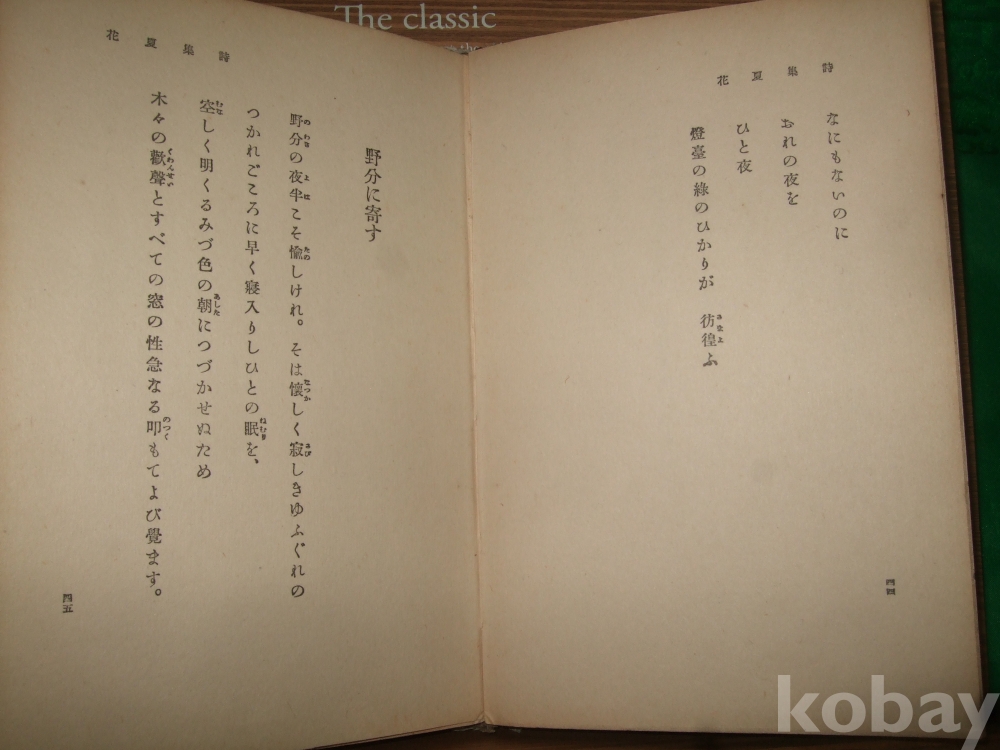 The classic
詩集夏花
なにもないのに
おれの夜を
ひと夜
燈臺の綠のひかりが 彷徨ふ
四四
詩集夏花
野分に寄す
野分の夜半こそ愉しけれ。そは懷しく寂しきゆふぐれの
つかれごころに早く寢入りしひとの眠を、
空しく明くるみづ色の朝につづかせぬため
木々の歡聲とすべての窓の性急なる叩もてよび覺ます。
四五
kobay